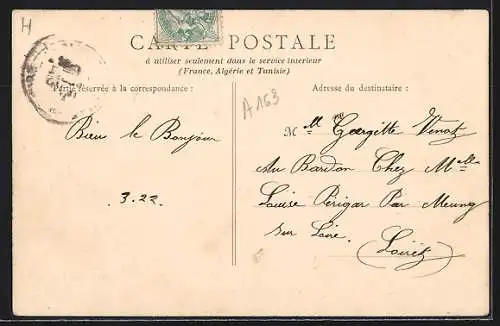 H
CARTE POSTALE
à utiliser seulement dans le service intérieur
(France, Algérie et Tunisie)
Partie réservée à la correspondance :
Adresse du destinataire :
A 163
Bien le Bonjour
3.22.
Mlle Gargitte Venot
Au Bardon Chez Melle
Louise Périgar Par Meung
sur Loire.
(Loiret)